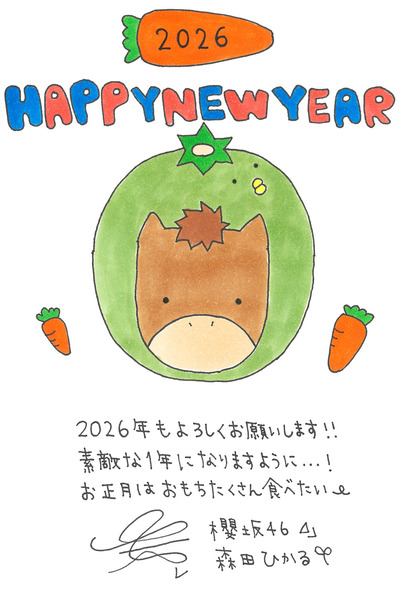 2026
HAPPY NEW YEAR
2026年もよろしくお願いします!!
素敵な1年になりますように...!
お正月はおもちたくさん食べたい
櫻坂46
森田ひかる